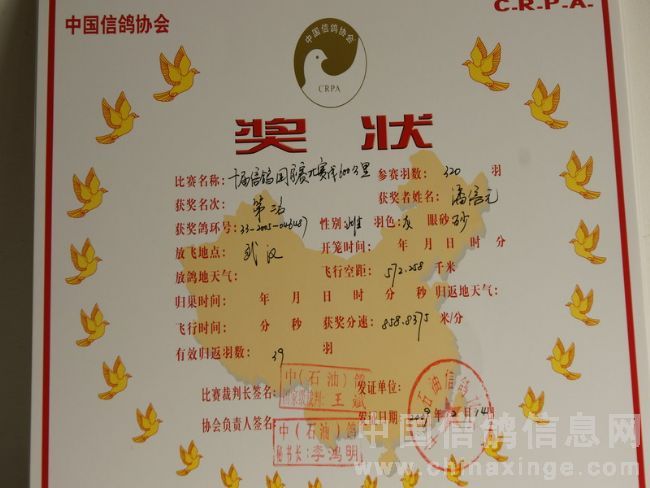 中国信鸽协会
C-R-P-A-
中国信鸽协会
CRPA
奖 状
比赛名称: 参赛羽数: 320 羽
获奖名次: 第二名 获奖者姓名:
获奖鸽环号: 33-2005-046487 性别: 雄 羽色: 灰 眼砂: 砂
放飞地点: 武汉 开笼时间: 年 月 日 时 分
放鸽地天气: 飞行空距: 572.258 千米
归巢时间: 年 月 日 时 分 秒 归返地天气:
飞行时间: 分 秒 获奖分速: 858.8375 米/分
有效归返羽数: 39 羽
比赛裁判长签名: 中(石油)鸽 王斌 发证单位:
协会负责人签名: 中(石油)鸽 秘书长:李鸿明 发证日期: 2009年 月14日
石油信鸽
中国信鸽信息网
www.chinaxinge.com